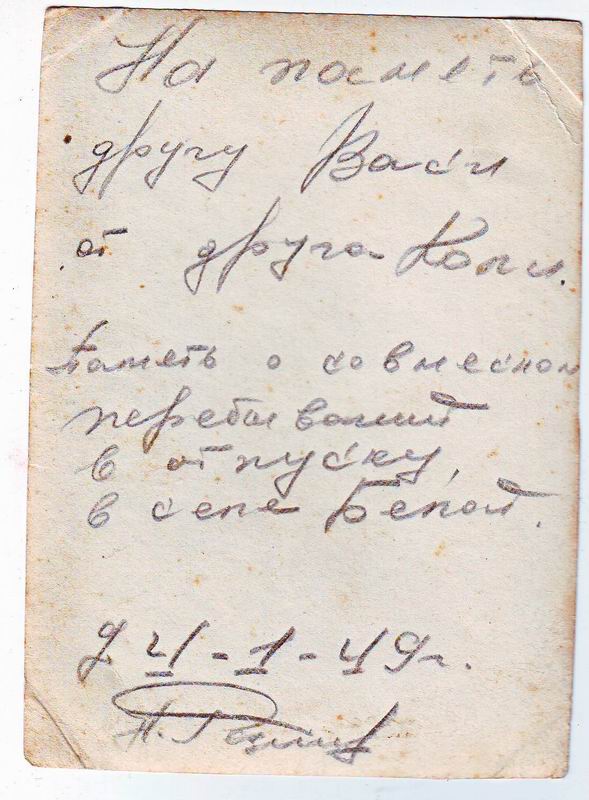 На паметь
другу Васи
от друга Коли.
Паметь о совмесном
перебываний
в отпуску,
в селе Белой.
24-1-49г.